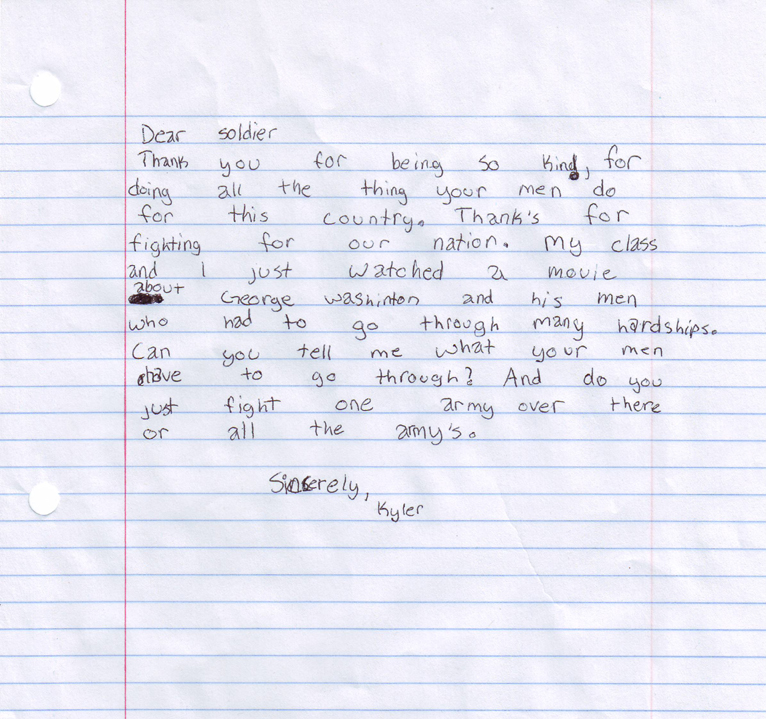 Dear soldier
Thank you for being so kind, for
doing all the thing your men do
for this country. Thank's for
fighting for our nation. My class
and I just watched a movie
about George washinton and his men
who had to go through many hardships.
Can you tell me what your men
have to go through? And do you
just fight one army over there
or all the army's.
Sincerely,
Kyler